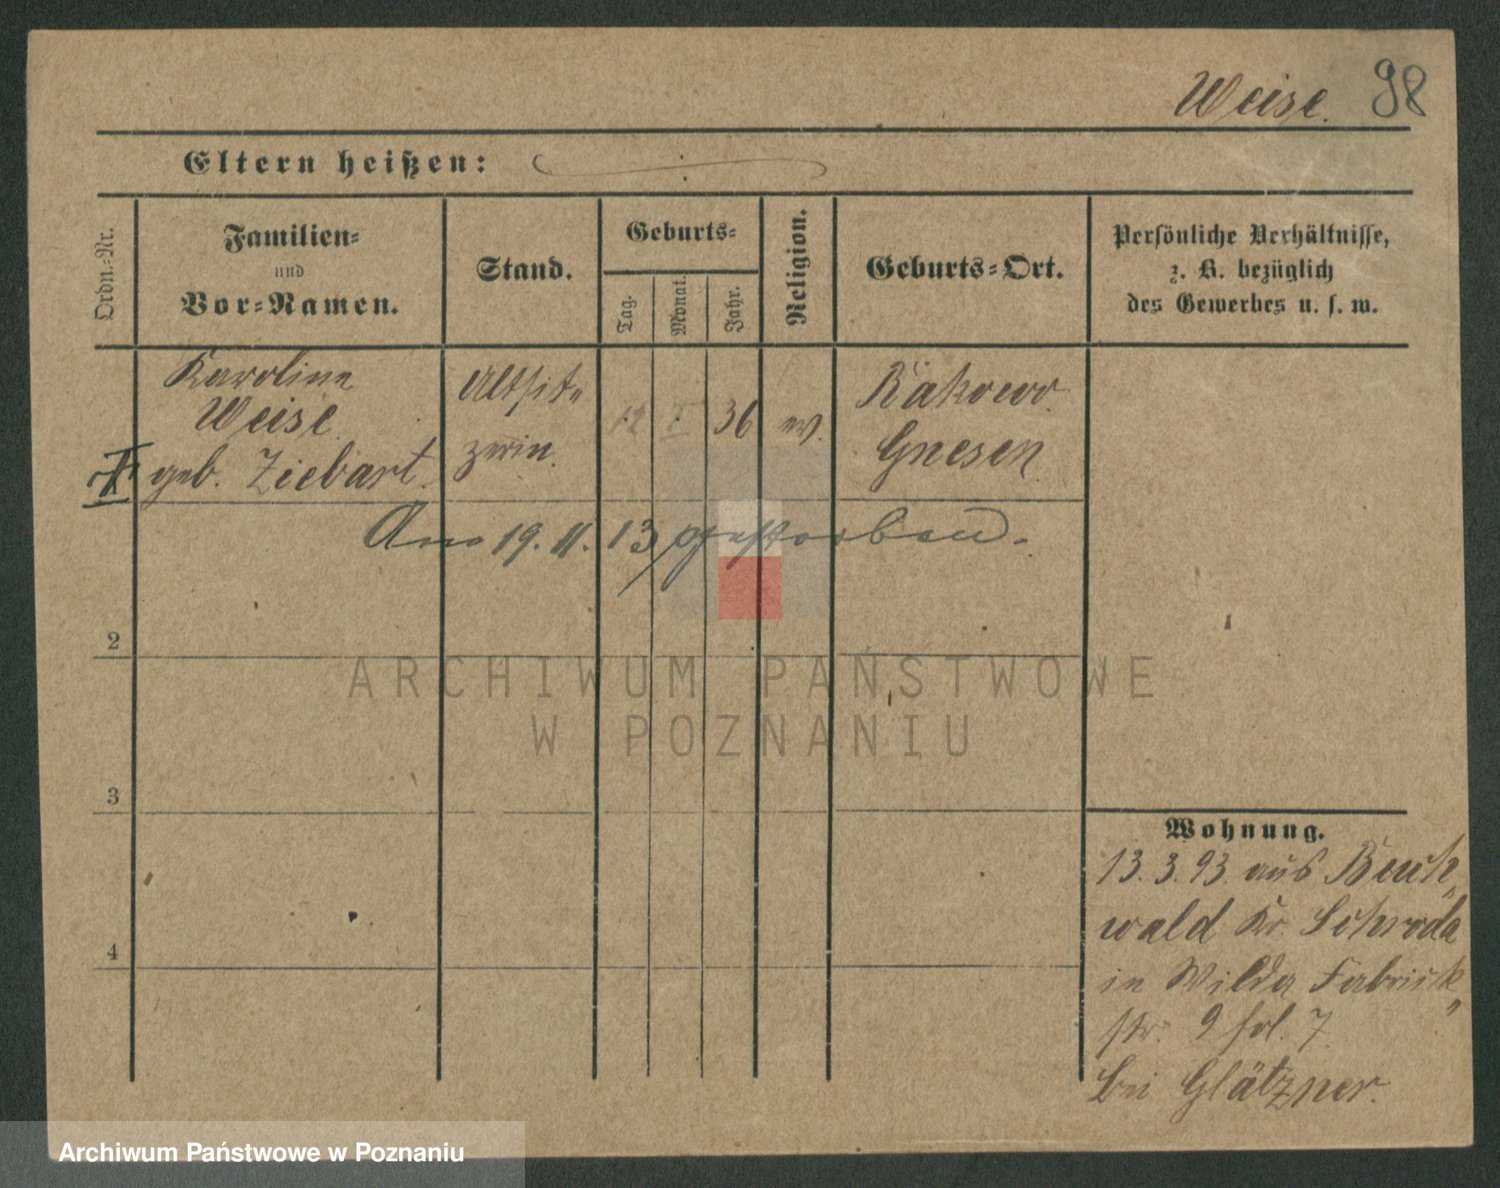 Weise. 98
Eltern heißen:
Ordn.-Nr.
Familien-
und
Vor-Namen.
Stand.
Geburts-
Tag.
Monat.
Jahr.
Religion.
Geburts-Ort.
Persönliche Verhältnisse,
z. B. bezüglich
des Gewerbes u. s. w.
Karoline
Weise
geb. Ziebart.
Altsit-
zerin.
12 I 36 ev.
Gnesen
Am 19. 11. 13 gestorben.
2
3
4
Wohnung.
13. 3. 93. aus
wald Kr. Schroda
in Wilda Fabrick
str. 9 fol. 7.
bei Glätzner.
ARCHIWUM PAŃSTWOWE
W POZNANIU
Archiwum Państwowe w Poznaniu